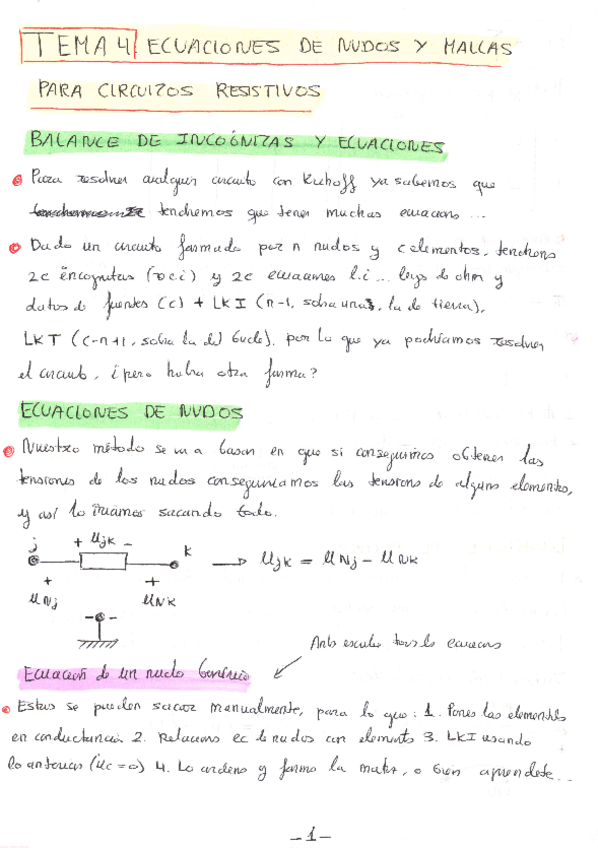 TEMA 4 ECUACIONES DE NUDOS Y MALLAS
PARA CIRCUITOS RESISTIVOS
BALANCE DE INCOGNITAS Y ECUACIONES
Para resolver cualquier circuito con Kichoff ya sabemos que
tendremos que tener muchas ecuacions ...
Dado un circuito formado por n nudos y c elementos, tendrems
2c incognitas (v.c.i) y 2c ecuaciones l.i ... leys de ohm y
datos de fuentes (c) + LKI (n-1, sobra una, la de tierra),
LKT (c-n+1, sobra la del bucle), por lo que ya podriamos resolver
el circuito, ¿pero habra otra forma?
ECUACIONES DE NUDOS
Nuestro método se va a basar en que si conseguimos obtener las
tensiones de los nudos conseguiriamos las tensions de algunos elementos,
y así lo iriamos sacando todo.
j + Ujk - k → Ujk = UNj - UNk
+ +
UNj UNk
- -
Ecuación de un nudo Genérico
Estas se pueden sacar manualmente, para lo que: 1. Pones los elementos
en conductancia 2. Relacions ec de nudos con elements 3. LKI usando
lo anterior 4. Lo ordeno y formo la matriz, o bien aprendete...
-1-